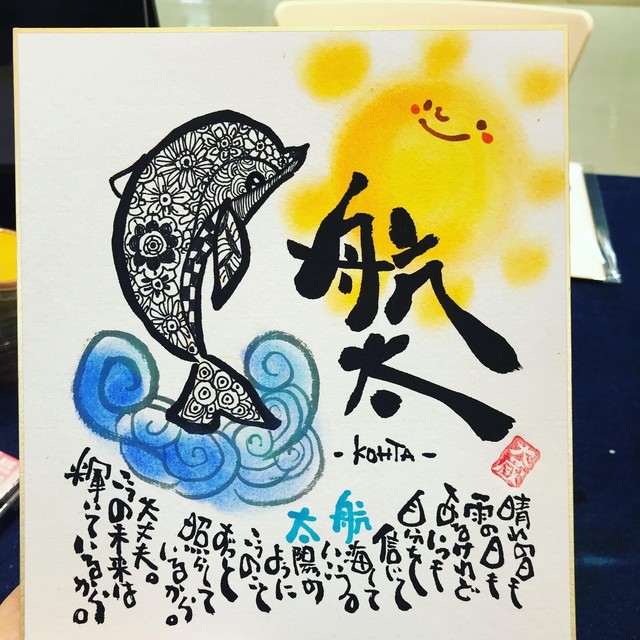 航太
-KOHTA-
晴れの日も
雨の日も
あるけれど
いつも
自分を
信じて
航海して
太陽の
ように
こうのこと
ずっと
照らして
いるから。
大丈夫。
こうの未来は
輝いているから。